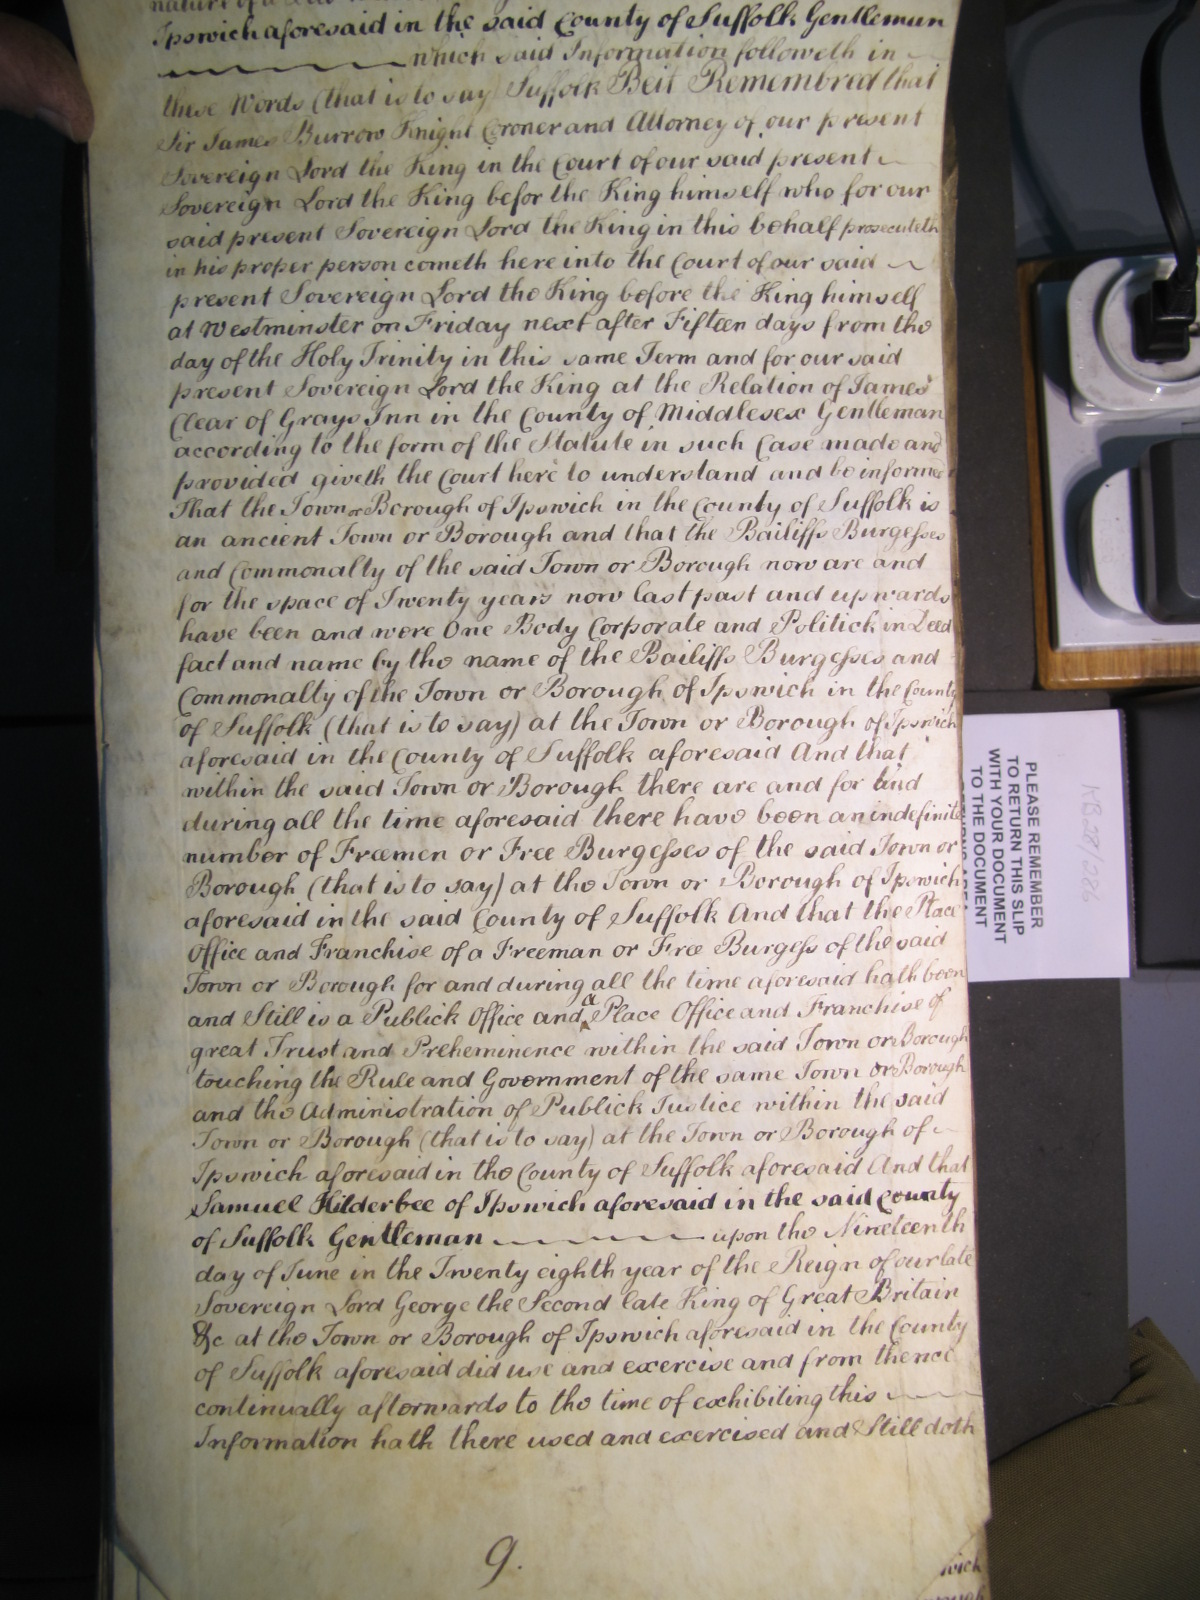 nature of a
Ipswich aforesaid in the said County of Suffolk Gentleman
which said Information followeth in
these Words (that is to say) Suffolk Beit Remembred that
Sir James Burrow Knight Coroner and Attorney of our present
Sovereign Lord the King in the Court of our said present
Sovereign Lord the King befor the King himself who for our
said present Sovereign Lord the King in this behalf prosecuteth
in his proper person cometh here into the Court of our said
present Sovereign Lord the King before the King himself
at Westminster on Friday next after Fifteen days from the
day of the Holy Trinity in this same Term and for our said
present Sovereign Lord the King at the Relation of James
Clear of Grays Inn in the County of Middlesex Gentleman
according to the form of the Statute in such Case made and
provided giveth the Court here to understand and be informed
That the Town or Borough of Ipswich in the County of Suffolk is
an ancient Town or Borough and that the Bailiffs Burgesses
and Commonalty of the said Town or Borough now are and
for the space of Twenty years now last past and upwards
have been and were One Body Corporate and Politick in Deed
fact and name by the name of the Bailiffs Burgesses and
Commonalty of the Town or Borough of Ipswich in the County
of Suffolk (that is to say) at the Town or Borough of Ipswich
aforesaid in the County of Suffolk aforesaid And that
within the said Town or Borough there are and for and
during all the time aforesaid there have been an indefinite
number of Freemen or Free Burgesses of the said Town or
Borough (that is to say) at the Town or Borough of Ipswich
aforesaid in the said County of Suffolk And that the Place
Office and Franchise of a Freeman or Free Burgess of the said
Town or Borough for and during all the time aforesaid hath been
and Still is a Publick Office and a Place Office and Franchise of
great Trust and Preheminence within the said Town or Borough
touching the Rule and Government of the same Town or Borough
and the Administration of Publick Justice within the said
Town or Borough (that is to say) at the Town or Borough of
Ipswich aforesaid in the County of Suffolk aforesaid And that
Samuel Kilderbee of Ipswich aforesaid in the said County
of Suffolk Gentleman upon the Nineteenth
day of June in the Twenty eighth year of the Reign of our late
Sovereign Lord George the Second late King of Great Britain
&c at the Town or Borough of Ipswich aforesaid in the County
of Suffolk aforesaid did use and exercise and from thence
continually afterwards to the time of exhibiting this
Information hath there used and exercised and Still doth
9.
wich
PLEASE REMEMBER
TO RETURN THIS SLIP
WITH YOUR DOCUMENT
TO THE DOCUMENT
KB 28/286